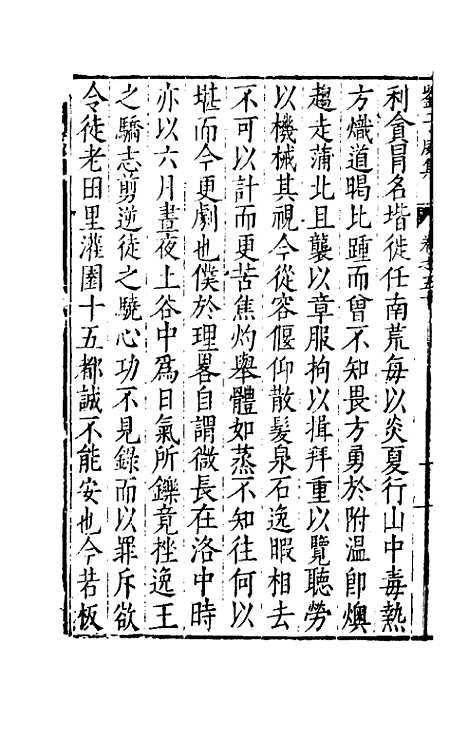 利貪冒名階徙任南荒每以炎夏行山中毒熱
方熾道暍比踵而曾不知畏方勇於附温卽燠
趨走蒲北且襲以章服拘以揖拜重以覽聽勞
以機械其視今從容偃仰散髮泉石逸暇相去
不可以計而更苦焦灼舉體如蒸不知往何以
堪而今更劇也僕於理畧自謂微長在洛中時
亦以六月晝夜上谷中爲日氣所鑠竟挫逸王
之驕志剪逆徒之驍心功不見錄而以罪斥欲
令徒老田里灌園十五都誠不能安也今若恢